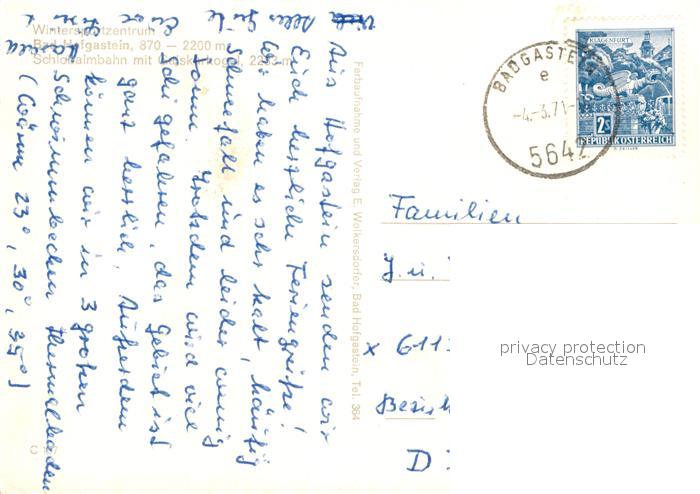 Wintersportzentrum
Bad Hofgastein, 870 — 2200 m
Schloßalmbahn mit
Aus Hofgastein senden wir
Euch herzliche Feriengrüße!
Wir haben es sehr kalt, häufig
Schneefall und leider wenig
Sonne. Trotzdem wird viel
Ski gefahren, das Gebiet ist
ganz herrlich. Außerdem
können wir in 3 großen
Schwimmbecken thermalbaden
(Wärme 23°, 30°, 35°)
Alles Gute
Farbaufnahme und Verlag E. Wolkersdorfer, Bad Hofgastein, Tel. 364
BADGASTEIN
e
-4.-3.71-
5642
KLAGENFURT
2S
REPUBLIK ÖSTERREICH
Familien
J. u.
x 611
D
privacy protection
Datenschutz